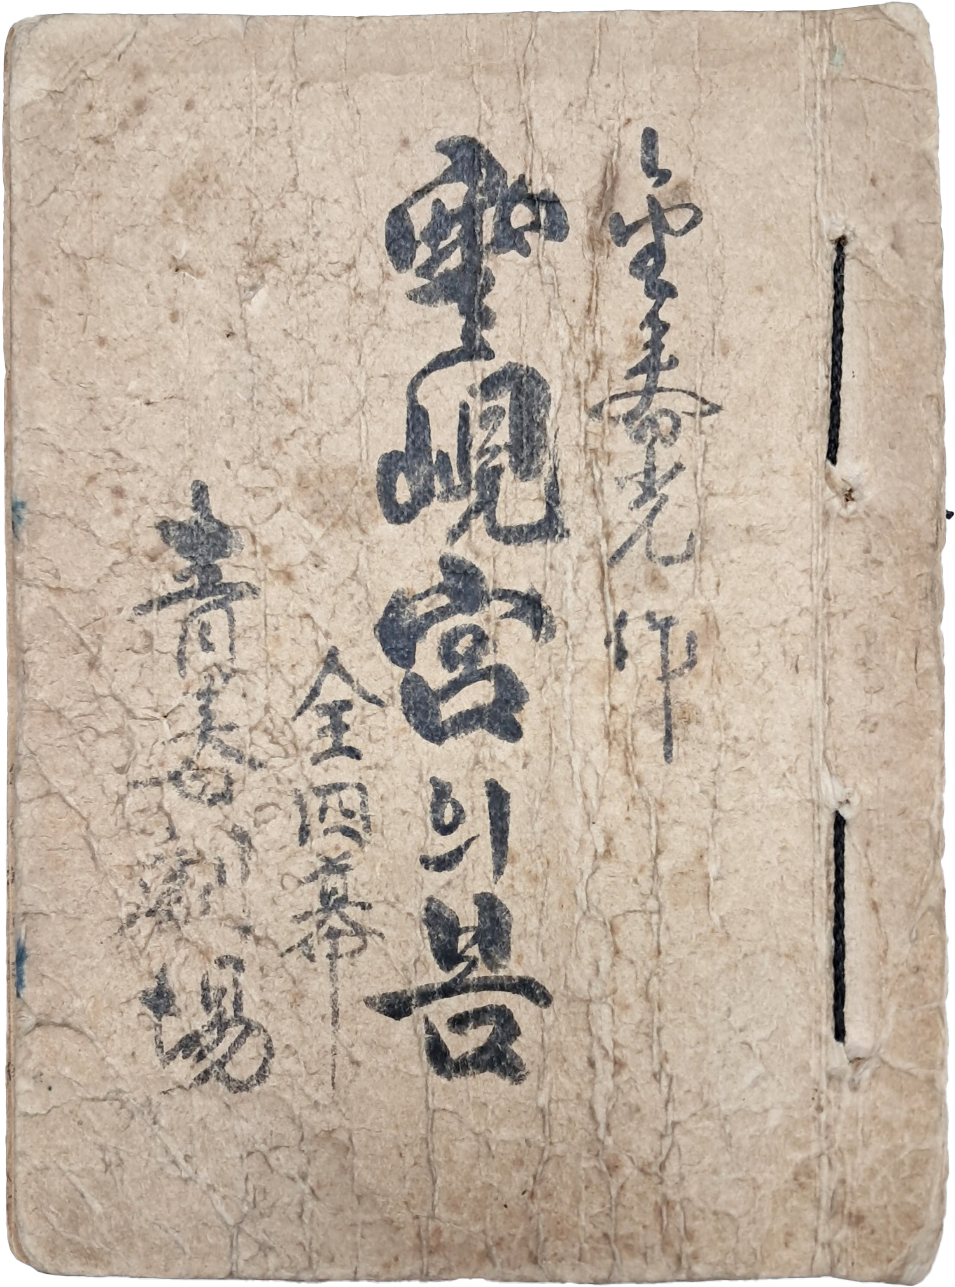 金春光 作
雲峴宮의봄
全四幕
靑春劇場